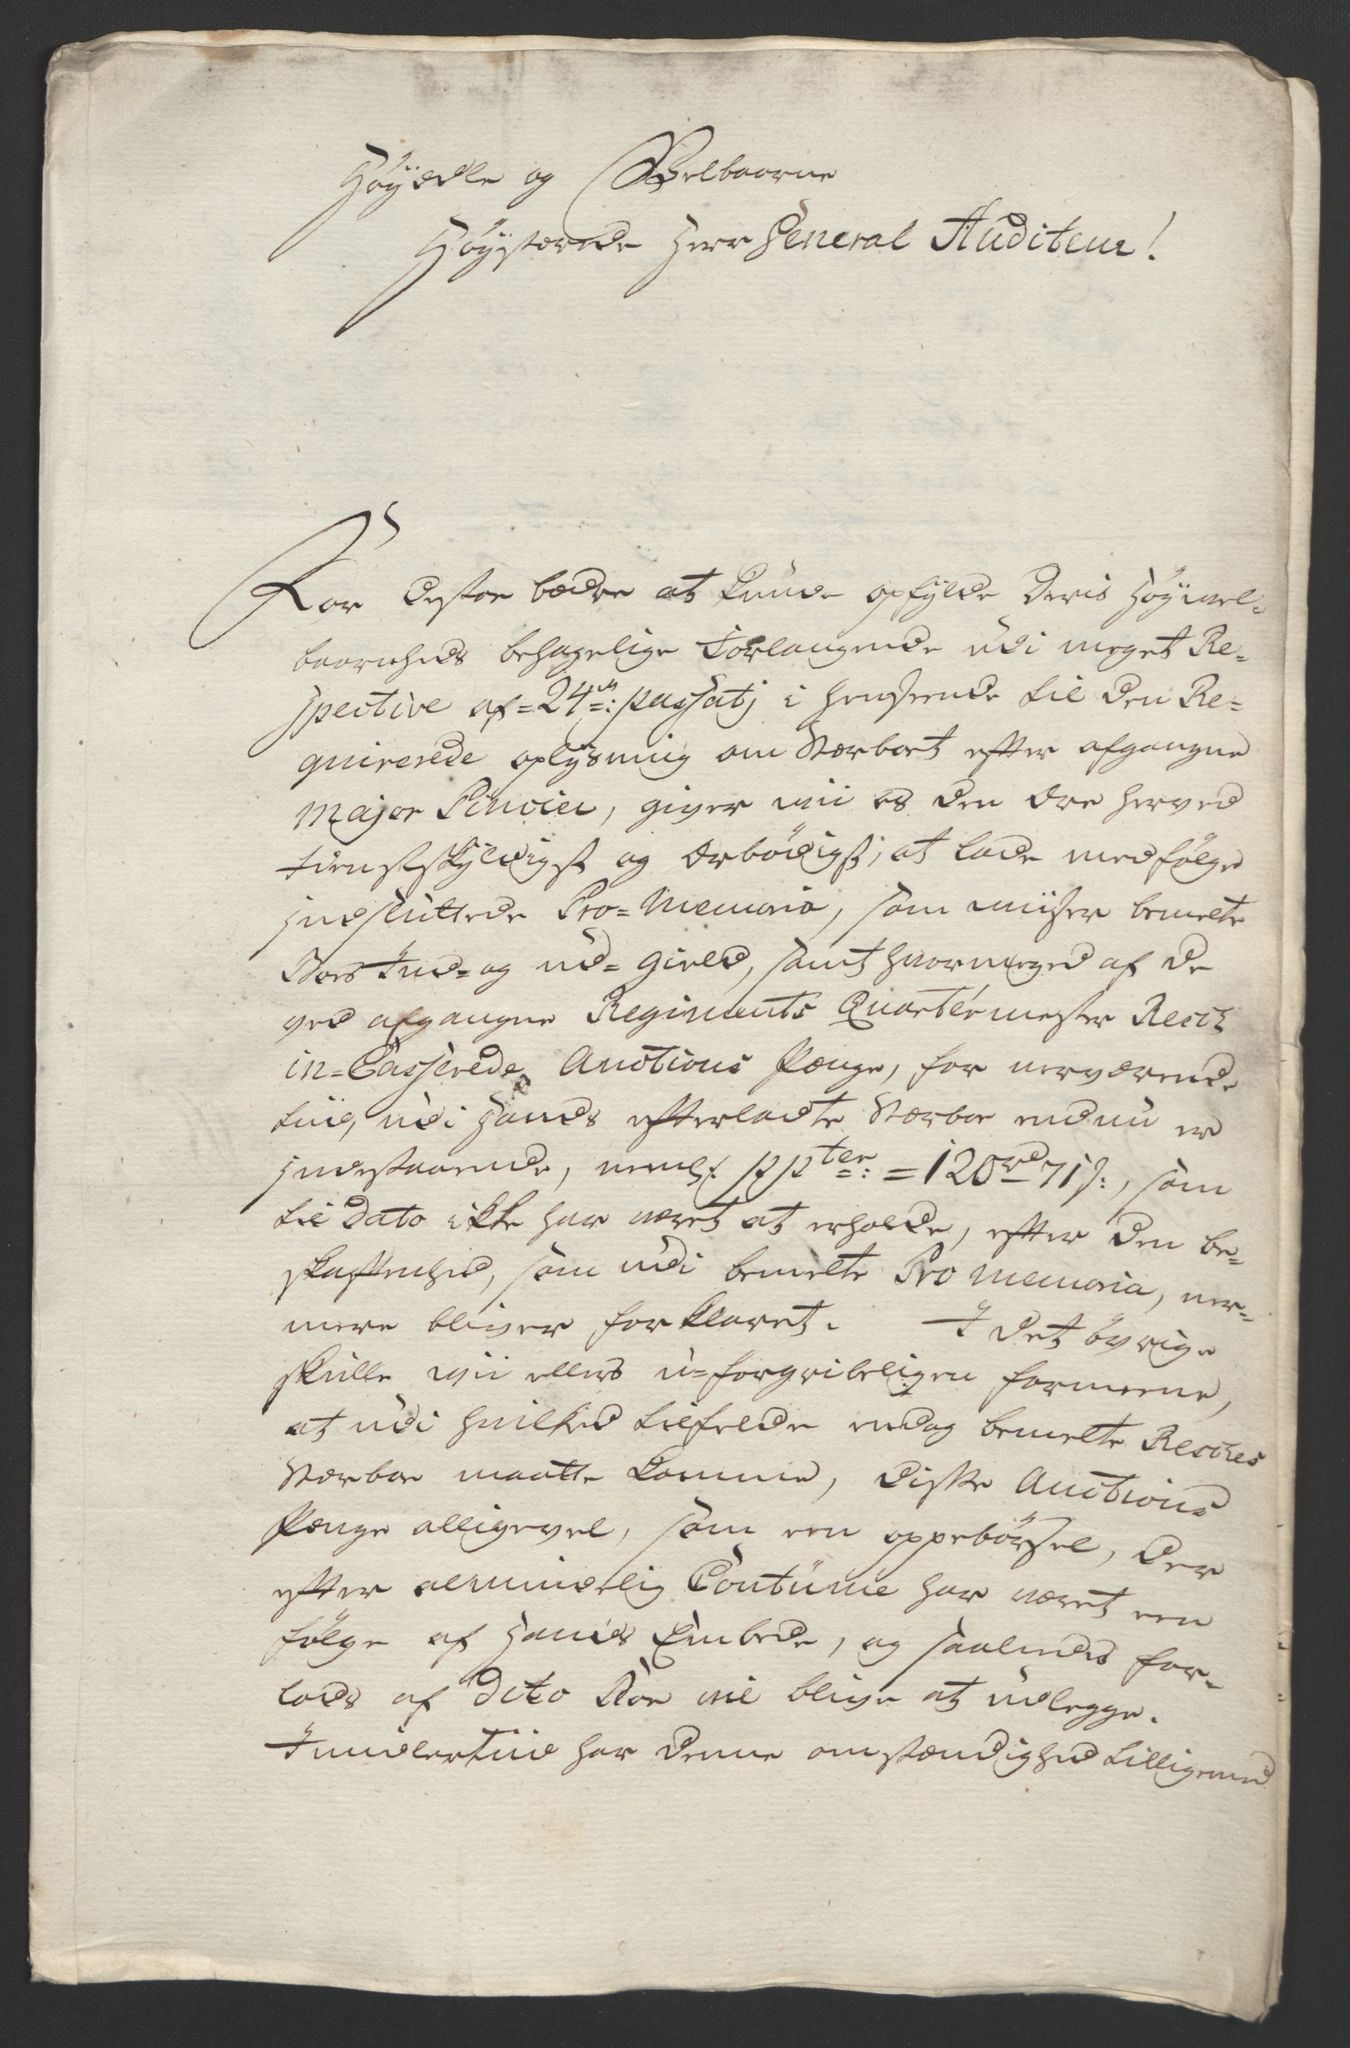 Høyædle og Velbaarne
Høystærede Herr General Auditeur!
For destoe bædre at kunde opfylde Deris Høywel-
baarenheds behagelige Forlangende udi meget Re-
spective af 24de: passati i henseende til den Re-
quirerede oplysning om Stærboet efter afgangne
Major Pinvier, giver wii os den Ære herved
tienstskyldigst og Ærbødigst, at lade medfølge
indsluttede Pro-Memoria, som wiiser bemelte
Boes Ind- og ud- gield, samt hvormeget af de
ved afgangne Regiments Quarteermester Resch
in-Casserede Auctions Penge, for nerværende
tiid, udi Hands efterladte Stærboe endnu er
indestaaende, neml: ppter: = 120rd 71s:, som
til Dato ikke har været at erholde, efter den be-
skaffenhed, som udi bemelte Pro Memoria, ner-
mere bliver forklaret. I det øvrige
skulle wii ellers u-forgribeligen formeene,
at udi hvilked tilfelde endog bemelte Resches
Stærboe maatte komme, diske Auctions
Penge alligevel, som een oppebørsel, der
efter almindelig Coutüme har været een
følge af Hands Embede, og saaledes for-
lods af dito Boe vil blive at udlegge.
Imidlertiid har denne omstændighed tilligemed